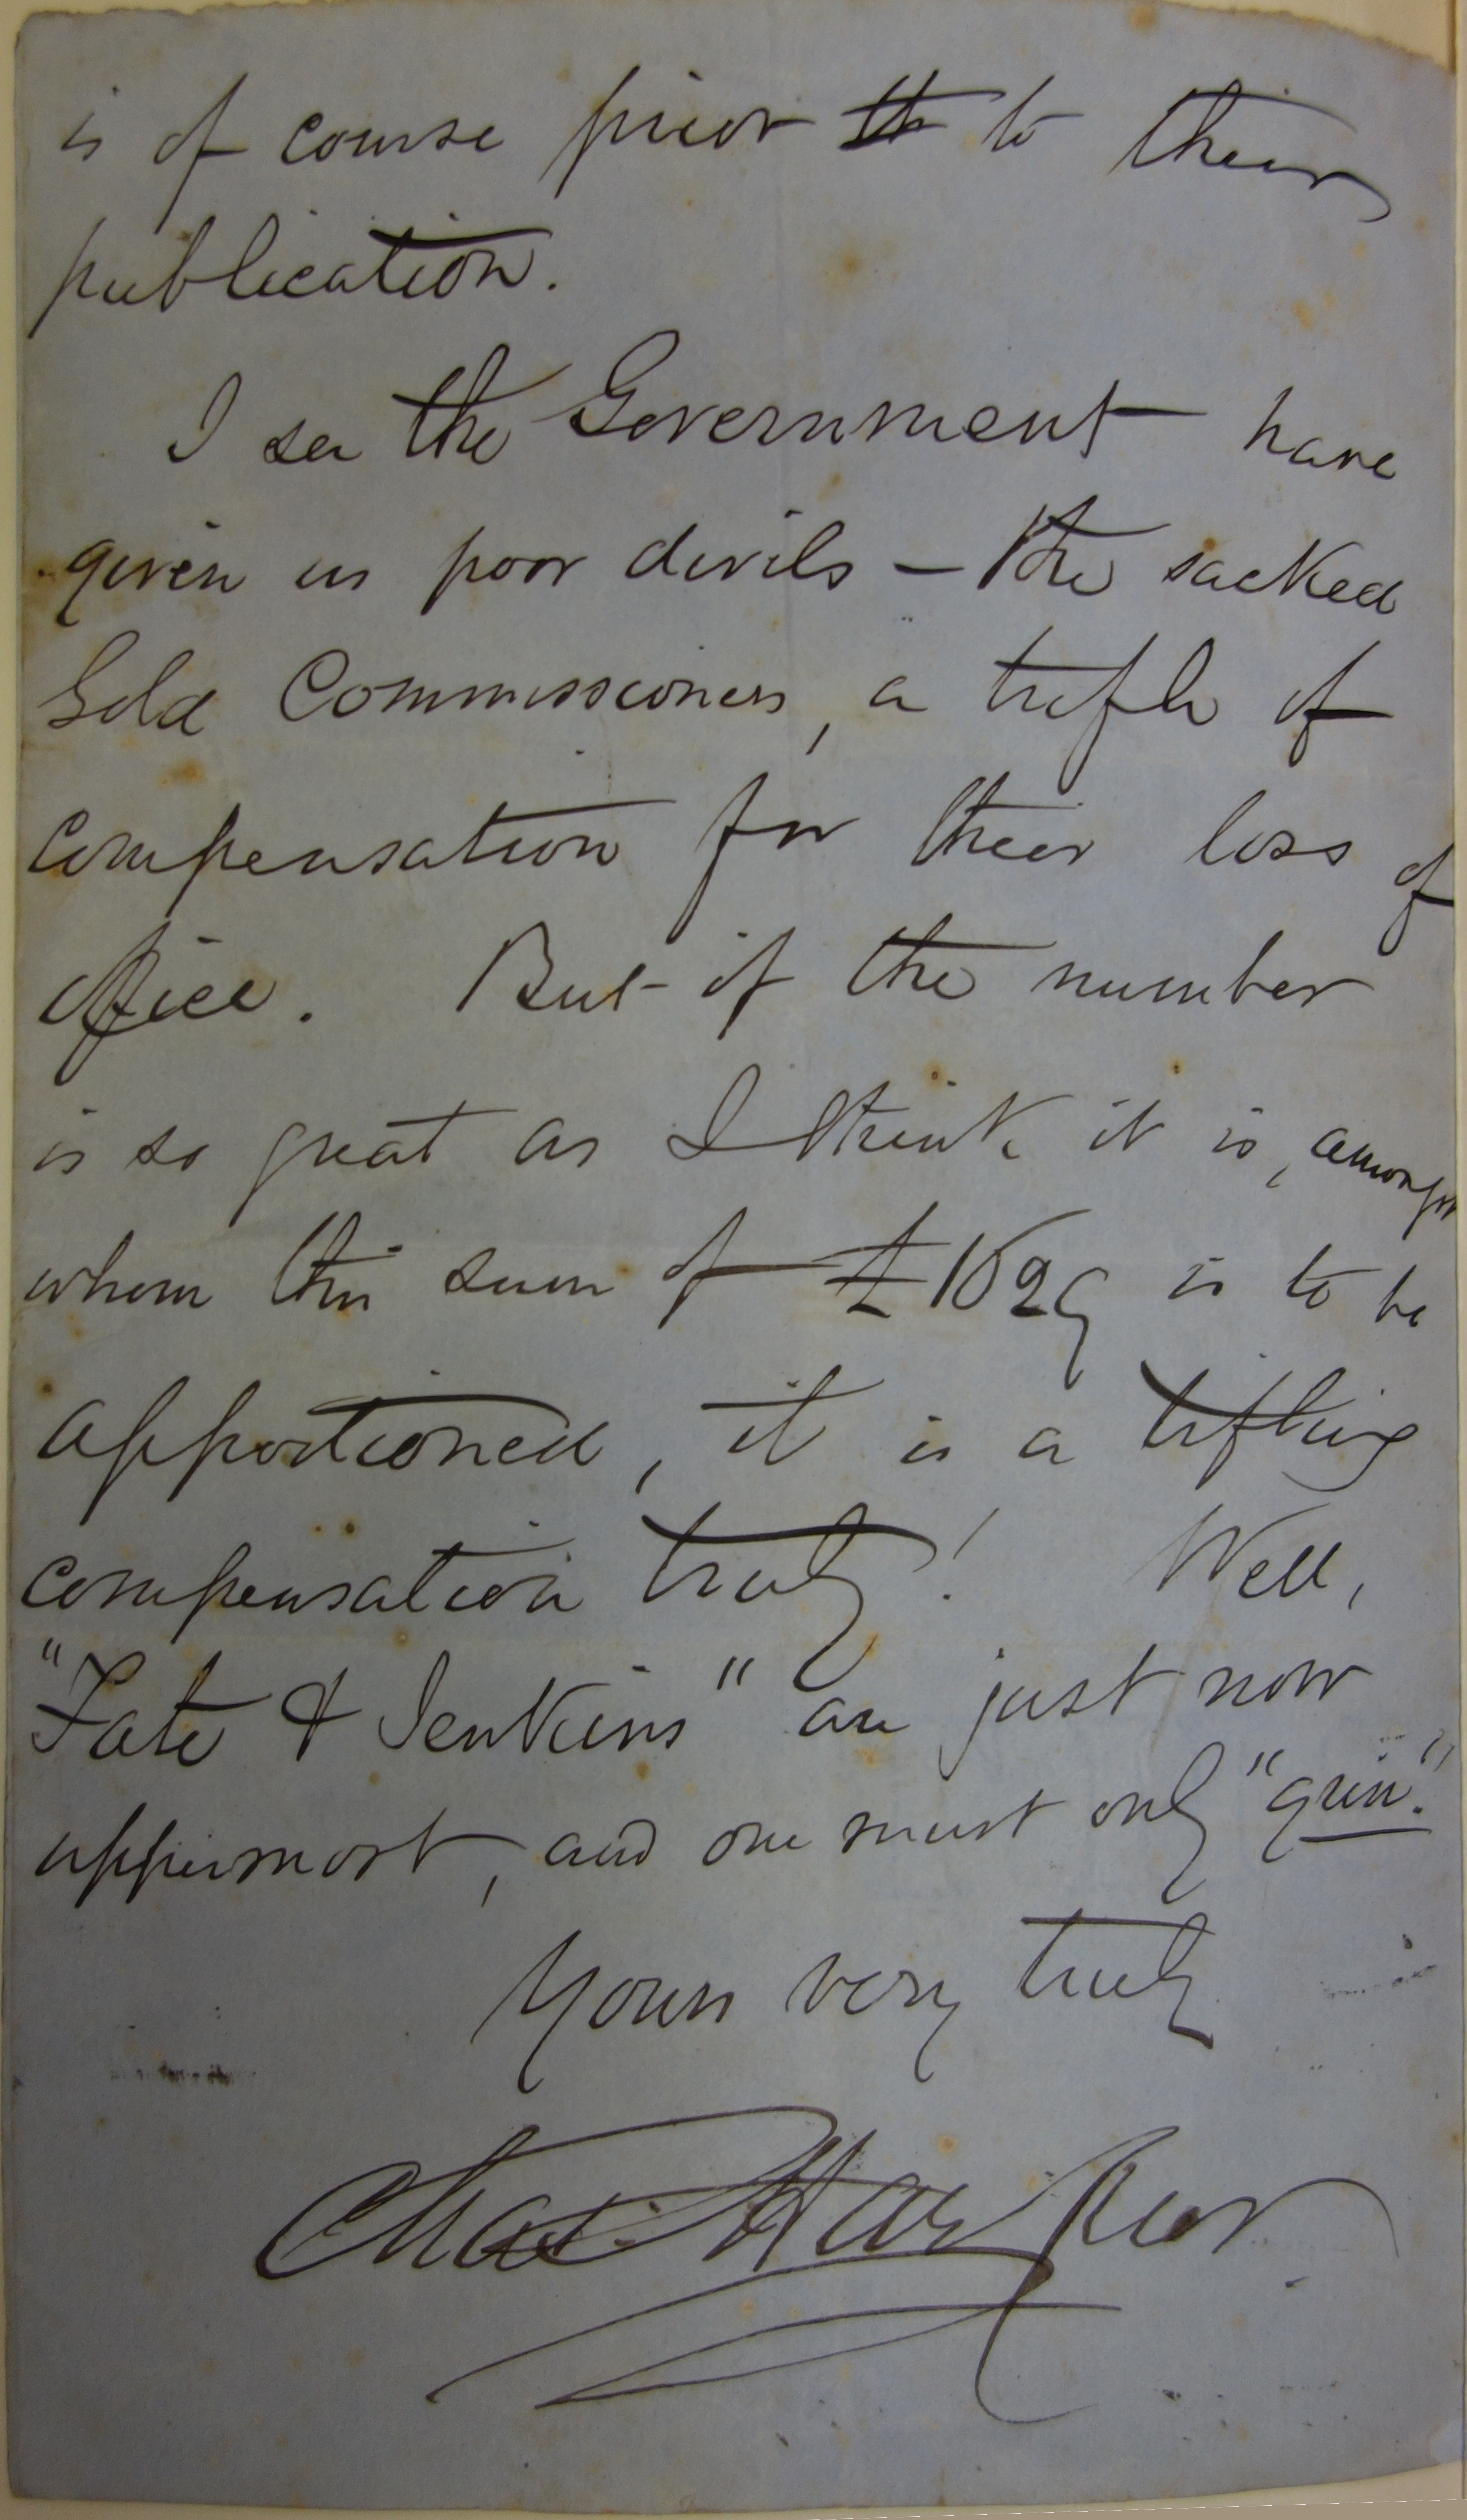 is of course prior th to their
publication.
I see the Government have
given us poor devils – the sacked
Gold Commissioners, a trifle of
compensation for their loss of
office. But if the number
is so great as I think it is, amongst
whom this sum of £1029 is to be
apportioned, it is a trifling
compensation truly! Well,
"Fate & Jenkins" are just now
uppermost, and one must only "grin."
Yours very truly
Chas. Harpur